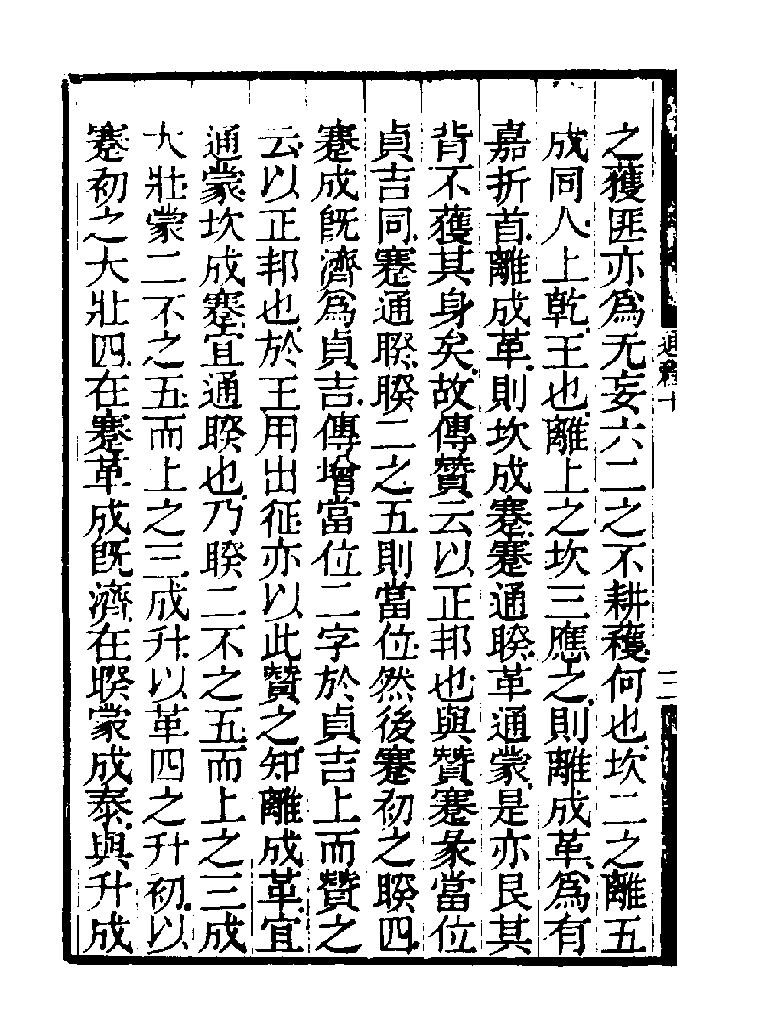 之獲匪亦爲无妄六二之不耕穫何也坎二之離五
成同人上乾王也離上之坎三應之則離成革爲有
嘉折首離成革則坎成蹇蹇通睽革通蒙是亦艮其
背不獲其身矣故傳贊云以正邦也與贊蹇彖當位
貞吉同蹇通睽睽二之五則當位然後蹇初之睽四
蹇成旣濟爲貞吉傳增當位二字於貞吉上而贊之
云以正邦也於王用出征亦以此贊之知離成革宜
通蒙坎成蹇宜通睽也乃睽二不之五而上之三成
大壯蒙二不之五而上之三成升以革四之升初以
蹇初之大壯四在蹇革成旣濟在睽蒙成泰與升成
通釋十
二